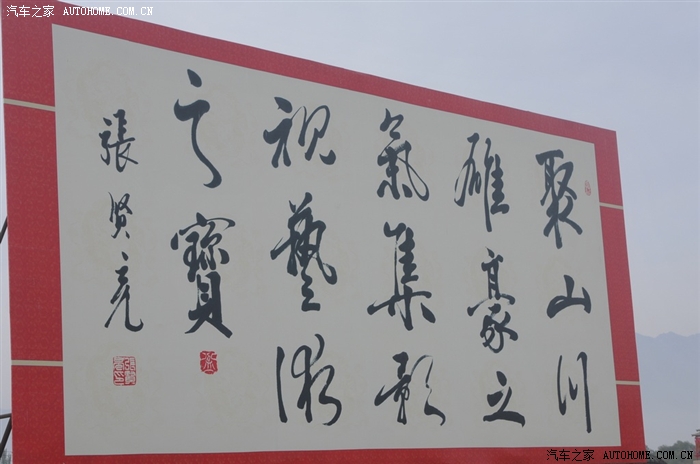 汽车之家 AUTOHOME.COM.CN
聚山川
雄豪之
氣集影
視藝術
之寶
張賢亮
汽车之家 AUTOHOME.COM.CN